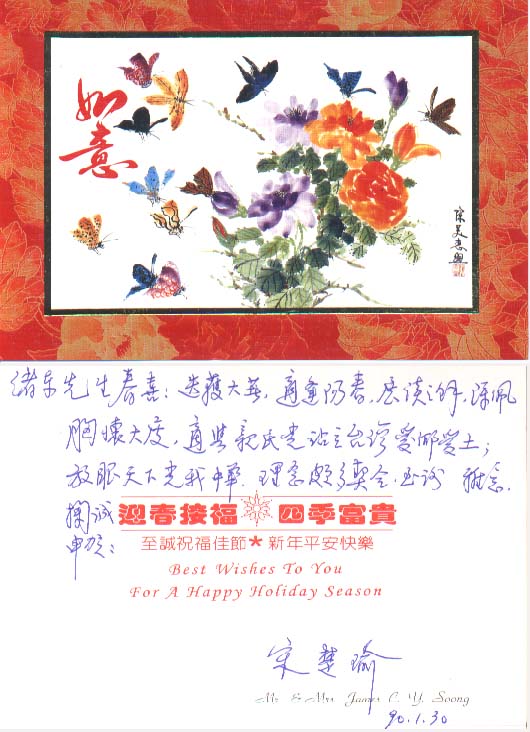 如意
緒東先生春喜:迭獲大函,適逢陽春,展讀之餘,深佩
胸懷大度,適與親民党站立台灣愛鄉愛土;
放眼天下光我中華 理念頗多契合,至謝 雅意.
擱誠
申賀:
迎春接福 四季富貴
至誠祝福佳節★新年平安快樂
Best Wishes To You
For A Happy Holiday Season
宋楚瑜
Mr. & Mrs. James C. Y. Soong
90.1.30